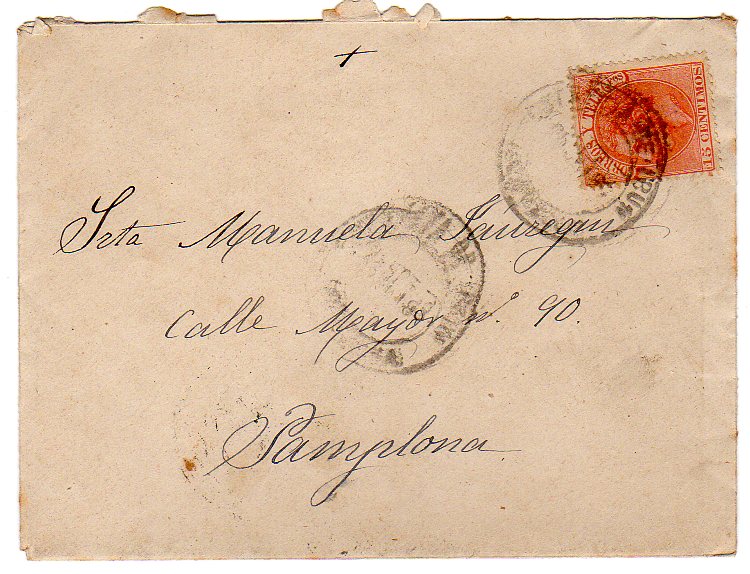 CORREOS Y TELEGFOS
15 CENTIMOS
Srta Manuela Jauregui
Calle Mayor nº 90.
Pamplona